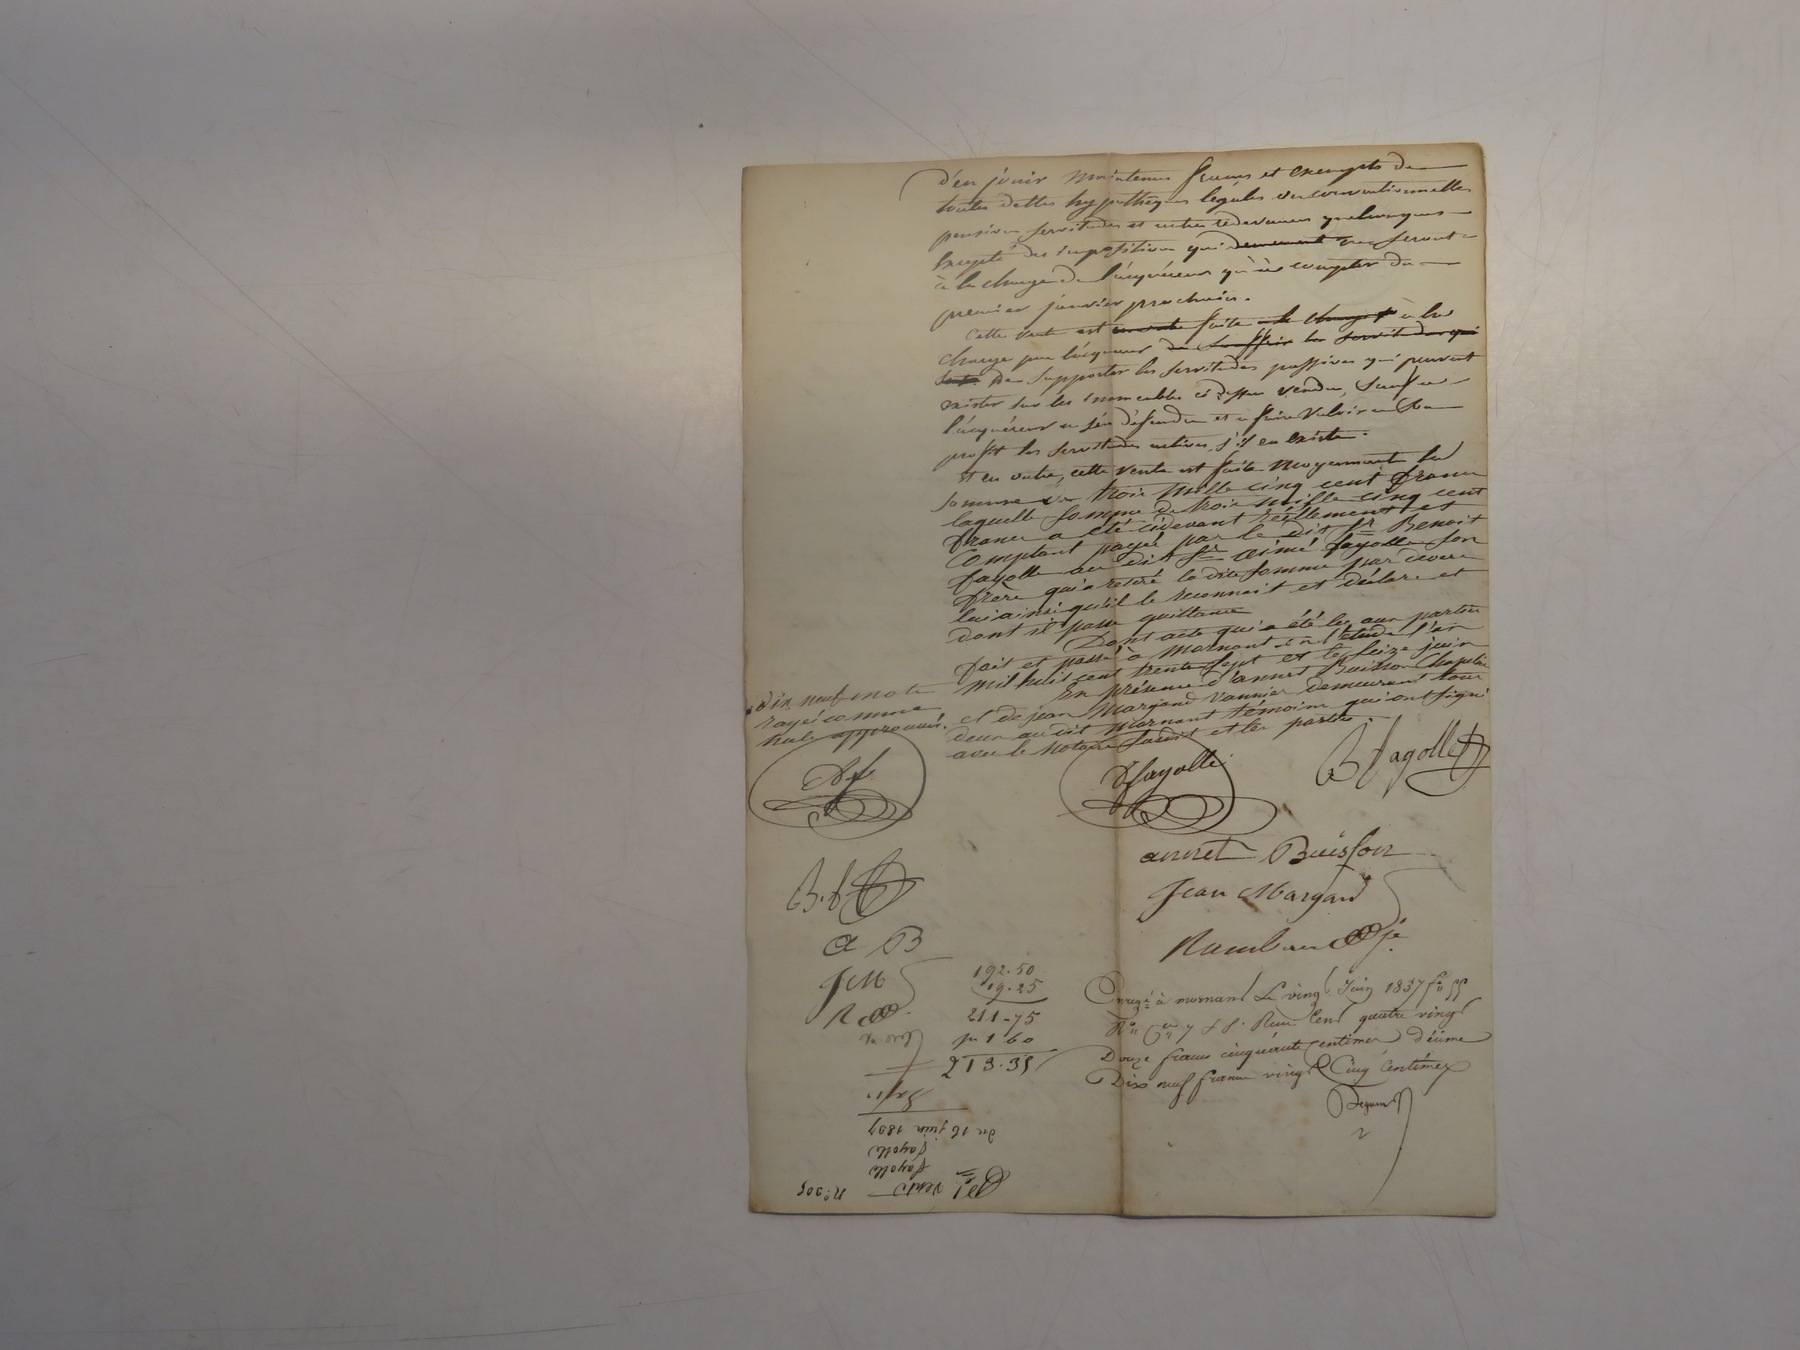 d'en jouir maintenu francs et exempts de
toutes dettes hypothèques légales ou conventionnelles
pension servitudes et autres redevances quelconques
Excepté des imposition qui demeurent que seront
à la charge de l'acquéreur qu'à compter du
premier janvier prochain.
Cette vente est faite a la charge à la
charge par l'acquereur de souffrir les servitudes qui
de supporter les servitudes passives qui peuvent
exister sur les immeubles ci dessu vendu, sauf a
l'acquéreur a s'en défendre et a faire valoir a son
profit les servitudes actives, s'il en existe.
Et en outre, cette vente est faite moyennant la
somme de trois mille cinq cent francs
laquelle somme de trois mille cinq cent
francs a été cidevant réellement et
comptant payée par le dit Sr Benoit
fayolle au dit Sr aimé fayolle son
frère qui a retiré la dite somme par devers
lui ainsi qu'il le reconnait et déclare et
dont il passe quittance
Dont acte qui a été lu aux parties
fait et passé à Mornant en l'étude l'an
mil huit cent trente sept et le seize juin
En présence d'annet Buisson Chapelier
et de jean Margand vannier demeurant tous
deux audit Mornant témoins qui ont signé
avec le Notaire susdit et les parties
dix neuf mots
rayés comme
nuls approuvés.
Af
Afayolle
B fayolle
annet Buisson
Jean Margand
B. f
a B
JM
R
192.50
19.25
211-75
1 60
213.35
Enregé à mornant Le vingt Juin 1837 fo 55
Ro Cen 7 & 8. Recu Cent quatre vingt
Douze francs cinquante centimes décime
Dix neuf francs vingt Cinq Centimes
No 205
Vente
fayolle
fayolle
du 16 juin 1837